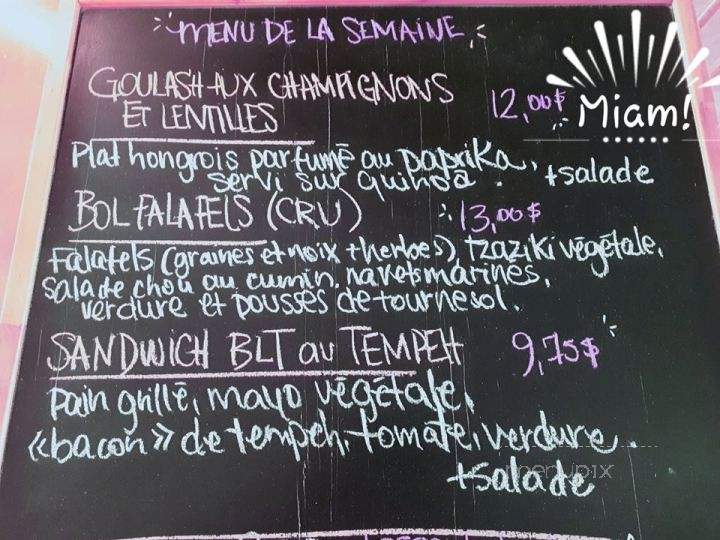 MENU DE LA SEMAINE
GOULASH AUX CHAMPIGNONS
ET LENTILLES
12,00$
Miam!
Plat hongrois parfumé au paprika,
servi sur quinoa.
+salade
BOL FALAFELS (CRU)
13,00$
Falafels (graines et noix + herbes), tzaziki végétale,
salade chou au cumin, navets marinés,
verdure et pousses de tournesol.
SANDWICH BLT au TEMPEH
9,75$
pain grillé, mayo végétale,
«bacon» de tempeh, tomate, verdure.
+salade
menupix